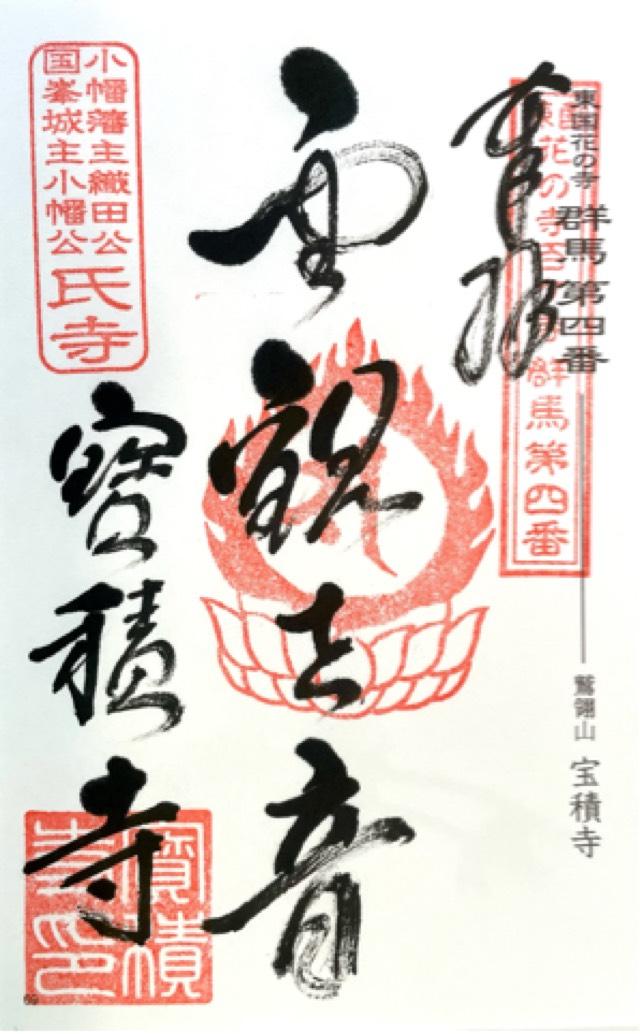 東国花の寺 群馬第四番
鷲翎山 宝積寺
花の寺百 群馬第四番
奉拝
聖觀世音
小幡藩主織田公
国峯城主小幡公
氏寺
寶積寺
寶積
寺印